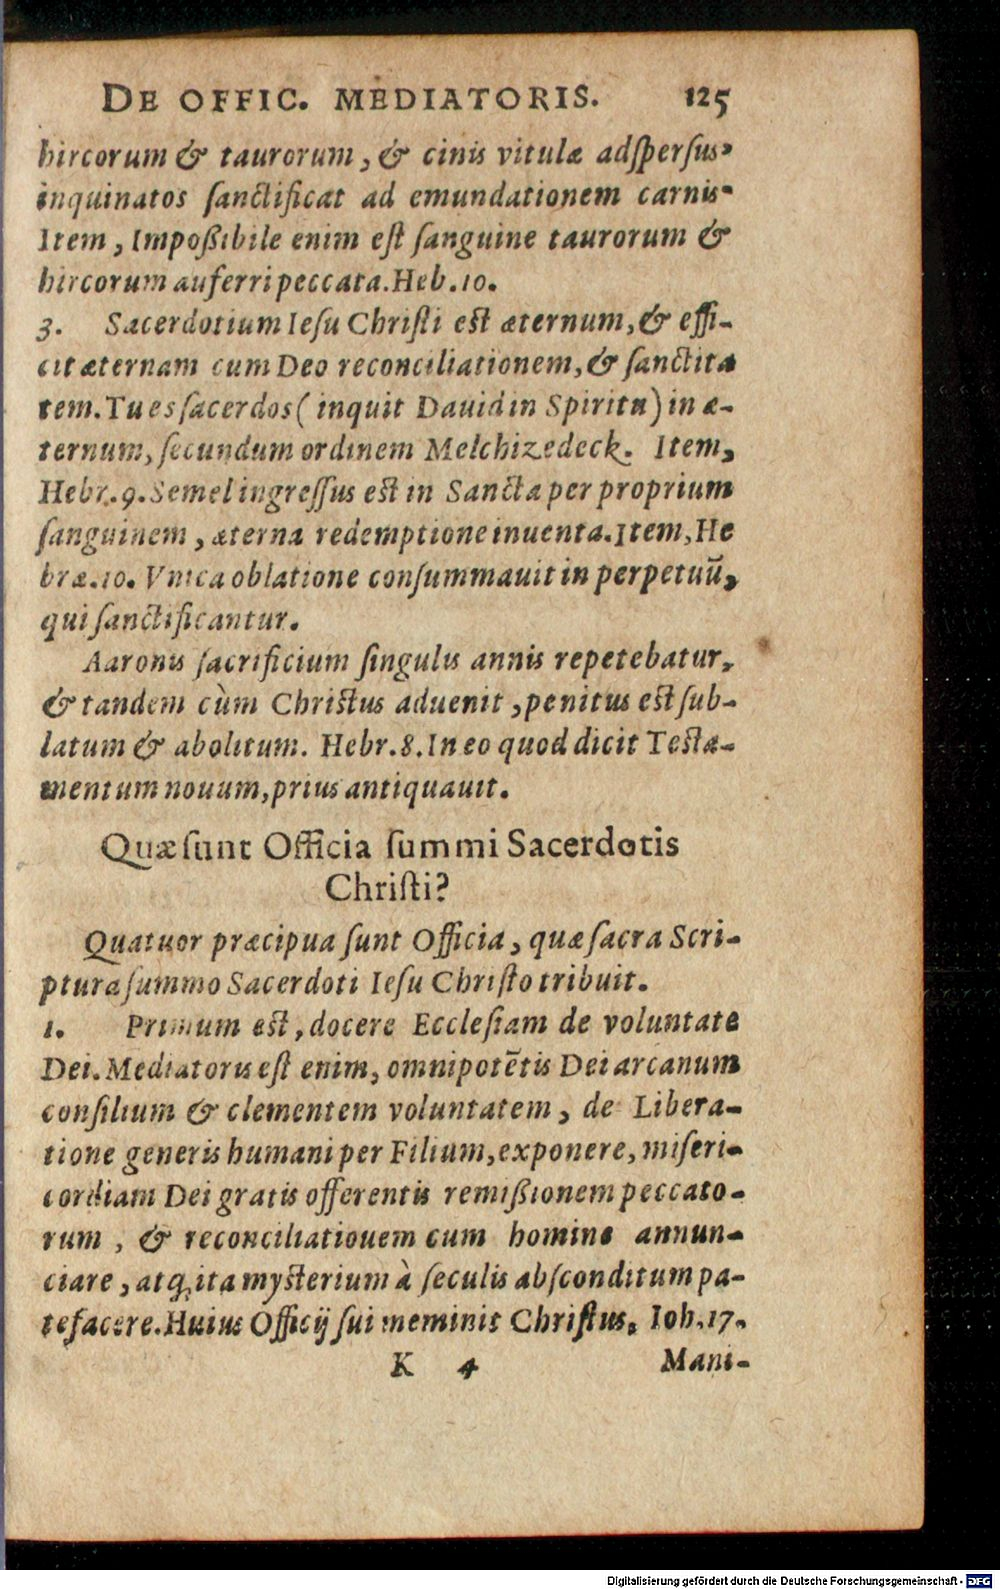 DE OFFIC. MEDIATORIS. 125
hircorum & taurorum, & cinis vitulæ adſperſus,
inquinatos ſanctificat ad emundationem carnis.
Item, Impoßibile enim eſt ſanguine taurorum &
hircorum auferri peccata. Heb. 10.
3. Sacerdotium Ieſu Chriſti eſt æternum, & effi-
cit æternam cum Deo reconciliationem, & ſanctita
tem. Tu es ſacerdos (inquit Dauid in Spiritu) in æ-
ternum, ſecundum ordinem Melchizedeck. Item,
Hebr. 9. Semel ingreſſus eſt in Sancta per proprium
ſanguinem, æterna redemptione inuenta. Item, He
bræ. 10. Vnica oblatione conſummauit in perpetuū,
qui ſanctificantur.
Aaronis ſacrificium ſingulis annis repetebatur,
& tandem cùm Chriſtus aduenit, penitus eſt ſub-
latum & abolitum. Hebr. 8. In eo quod dicit Teſta-
mentum nouum, prius antiquauit.
Quæ ſunt Officia ſummi Sacerdotis
Chriſti?
Quatuor præcipua ſunt Officia, quæ ſacra Scri-
ptura ſummo Sacerdoti Ieſu Chriſto tribuit.
1. Primum eſt, docere Eccleſiam de voluntate
Dei. Mediatoris eſt enim, omnipotētis Dei arcanum
conſilium & clementem voluntatem, de Libera-
tione generis humani per Filium, exponere, miſeri-
cordiam Dei gratis offerentis remißionem peccato-
rum, & reconciliatiouem cum homine annun-
ciare, atq; ita myſterium à ſeculis abſconditum pa-
tefacere. Huius Officij ſui meminit Chriſtus, Ioh. 17.
K 4 Mani-
Digitalisierung gefördert durch die Deutsche Forschungsgemeinschaft - DFG